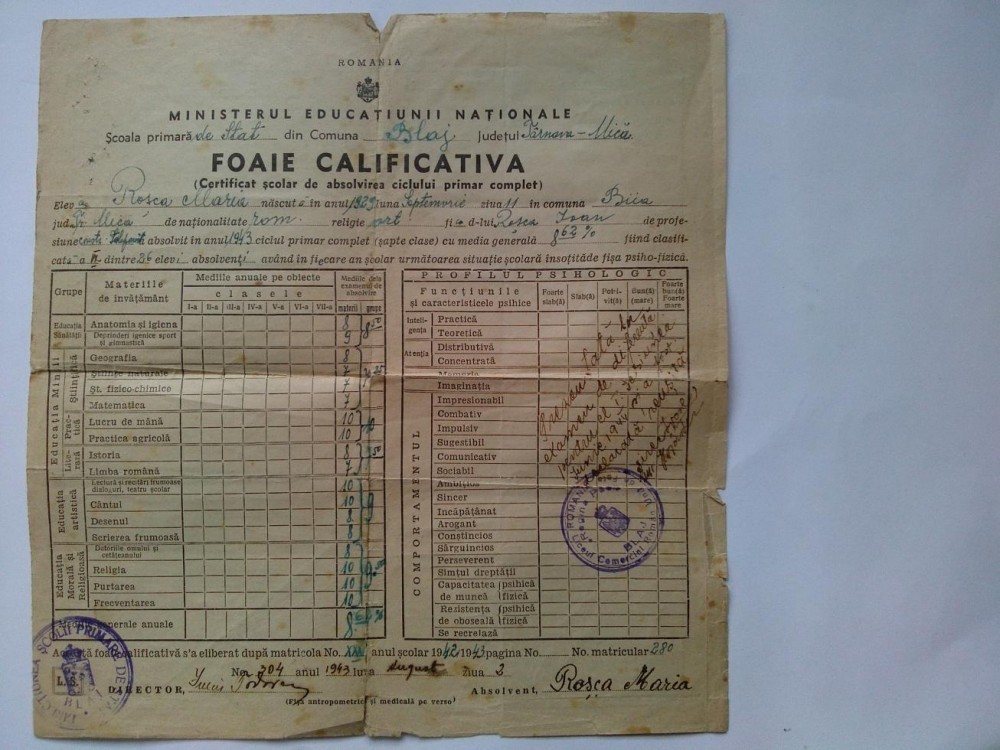 ROMANIA
MINISTERUL EDUCAȚIUNII NAȚIONALE
Școala primară de Stat din Comuna Blaj Județul Tărnava-Mică
FOAIE CALIFICATIVA
(Certificat școlar de absolvirea ciclului primar complet)
Elev a Roșca Maria născut ă în anul 1929 luna Septemvrie ziua 11 în comuna Biia
jud. Tr. Mică de naționalitate rom. religie ort fi că d-lui Roșca Ioan de profe-
siune absolvit în anul 1943 ciclul primar complet (șapte clase) cu media generală 8 62 % fiind clasifi-
cată a dintre 26 elevi absolvenți având în fiecare an școlar următoarea situație școlară însoțită de fișa psiho-fizică.
Grupe Materiile de învățământ Mediile anuale pe obiecte Mediile dela examenul de absolvire
clasele
I-a II-a III-a IV-a V-a VI-a VII-a materii grupe
Educația Sănătății
Anatomia și igiena 8
Deprinderi igenice sport și gimnastică 9
8 50
Educația Minții
Științifică
Geografia 8
Științe naturale 7
Șt. fizico-chimice 7
Matematica 7
7 25
Practică
Lucru de mână 10
Practica agricolă 10
10
Literară
Istoria 8
Limba română 7
7 50
Educația artistică
Lectură și recitări frumoase dialoguri, teatru școlar 10
Cântul 10
Desenul 8
Scrierea frumoasă 8
9
Educația Morală și Religioasă
Datoriile omului și cetățeanului 8
Religia 10
Purtarea 10
Frecventarea 10
9 50
generale anuale 8 62 %
PROFILUL PSIHOLOGIC
Funcțiunile și caracteristicele psihice Foarte slab(ă) Slab(ă) Potrivit(ă) Bun(ă) (mare) Foarte bun(ă) Foarte mare
Inteligența
Practică
Teoretică
Atenția
Distributivă
Concentrată
Memoria
Imaginația
COMPORTAMENTUL
Impresionabil
Combativ
Impulsiv
Sugestibil
Comunicativ
Sociabil
Ambițios
Sincer
Incăpățânat
Arogant
Conștincios
Sârguincios
Perseverent
Simțul dreptății
Capacitatea de muncă psihică fizică
Rezistența de oboseală psihică fizică
Se recrelază
examen de diferență
pentru cl.
Iunie 1944
ROMANIA
Liceul Comercial
BLAJ
ȘCOLII PRIMARE DE STAT
foaie calificativa s'a eliberat după matricola No. anul școlar 1942/1943 pagina No. No. matricular 280
No. 204 anul 1943 luna August Ziua 2
L. S.
DIRECTOR,
Absolvent, Roșca Maria
(Fișa antropometrică și medicală pe verso)